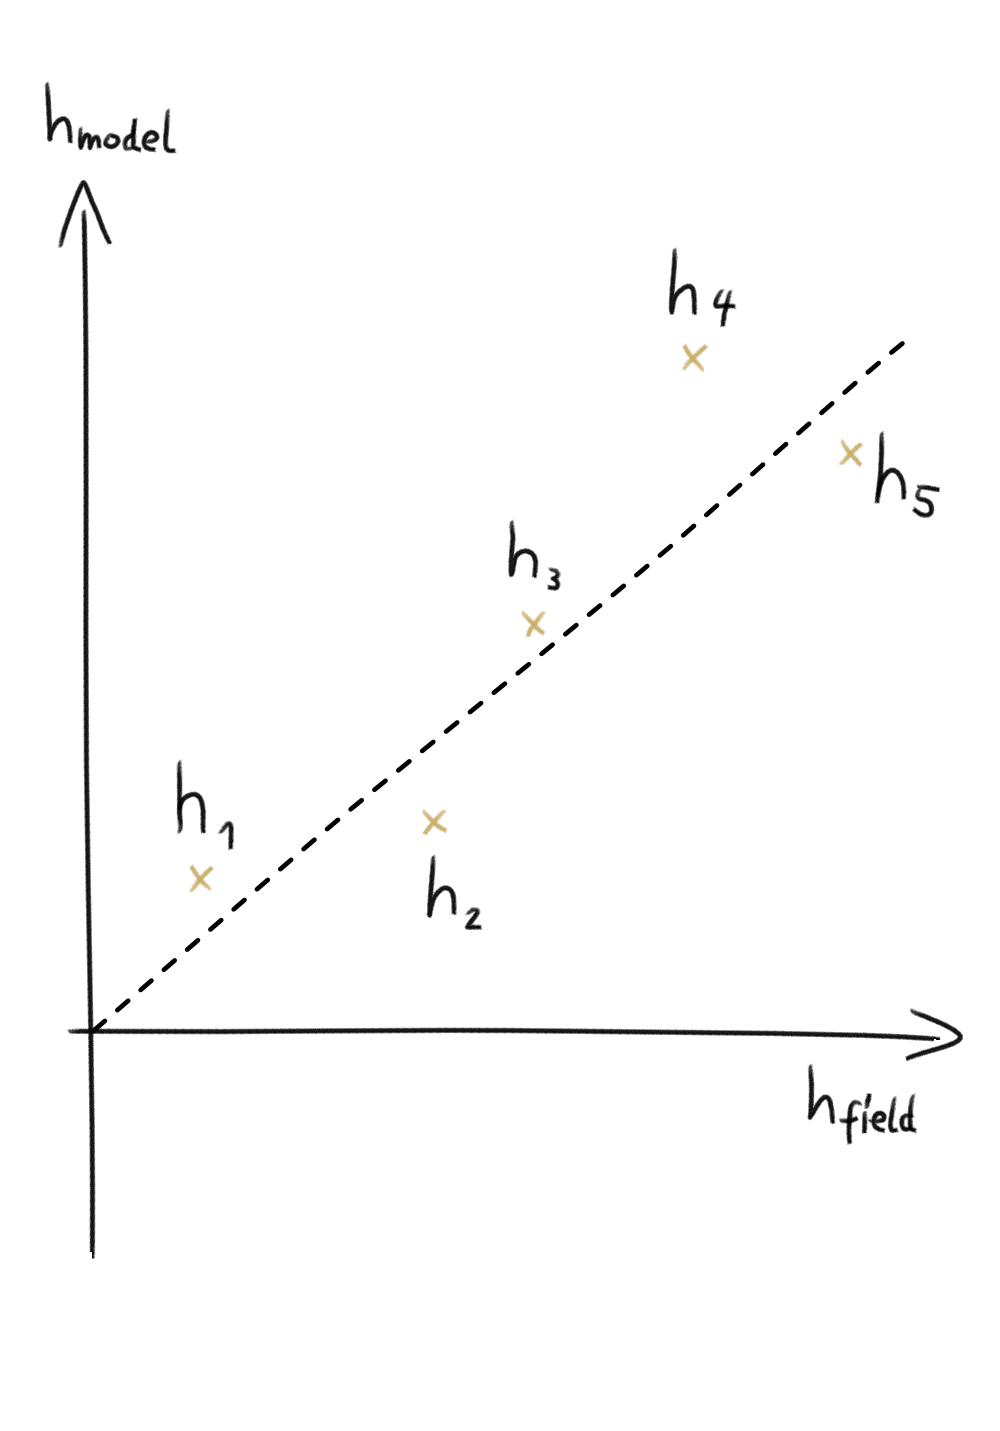 hmodel
h4
h5
h3
h1
h2
hfield